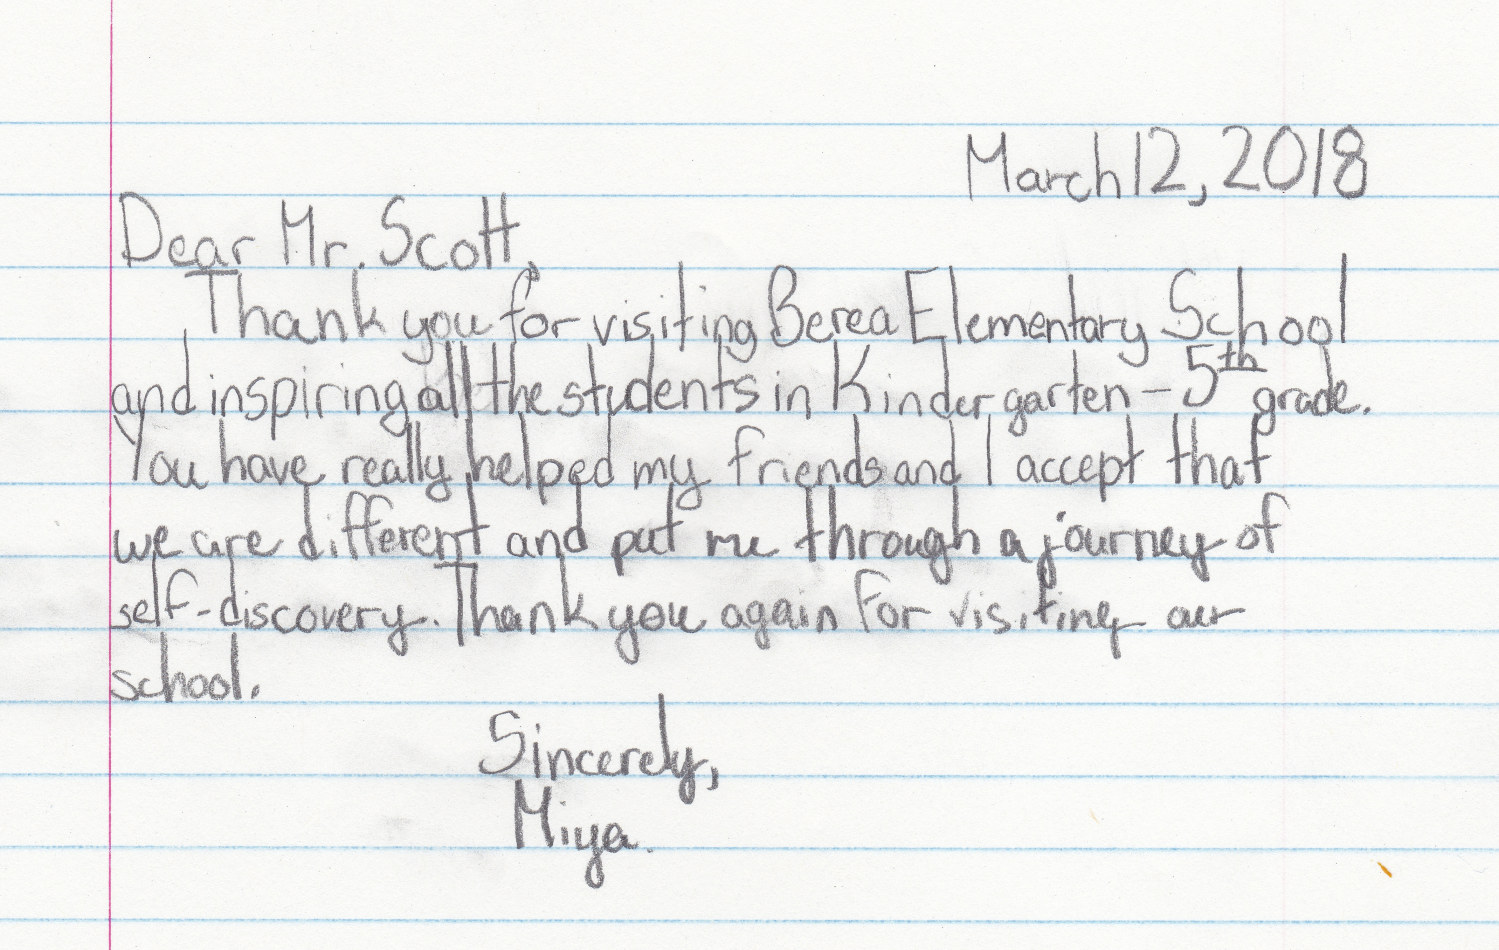 March 12, 2018
Dear Mr. Scott,
Thank you for visiting Berea Elementary School
and inspiring all the students in Kindergarten - 5th grade.
You have really helped my friends and I accept that
we are different and put me through a journey of
self-discovery. Thank you again for visiting our
school.
Sincerely,
Miya.